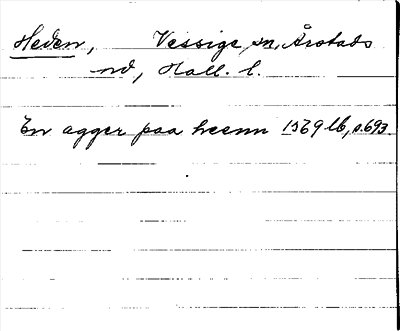 Heden, Vessige sn, Årstads
nd, Hall. l.
En agger paa heenn 1569 lb, s. 693.